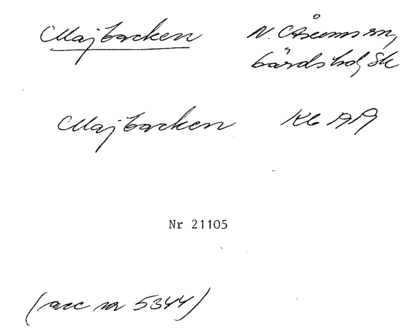 Majbacken N. Åsum sn,
Gärds hd, Sk
Majbacken Kb 1919
Nr 21105
(acc nr 5344)